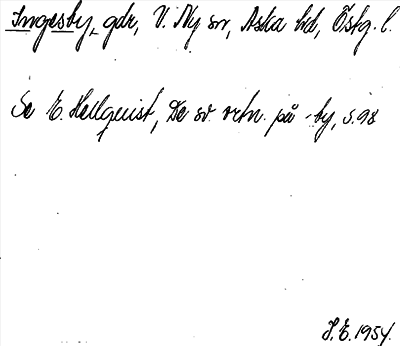 Ingesby, gdr, V. Ny sn, Aska hd, Östg. l.
Se E. Hellquist, De sv. ortn. på -by, s. 98
J.E. 1954.